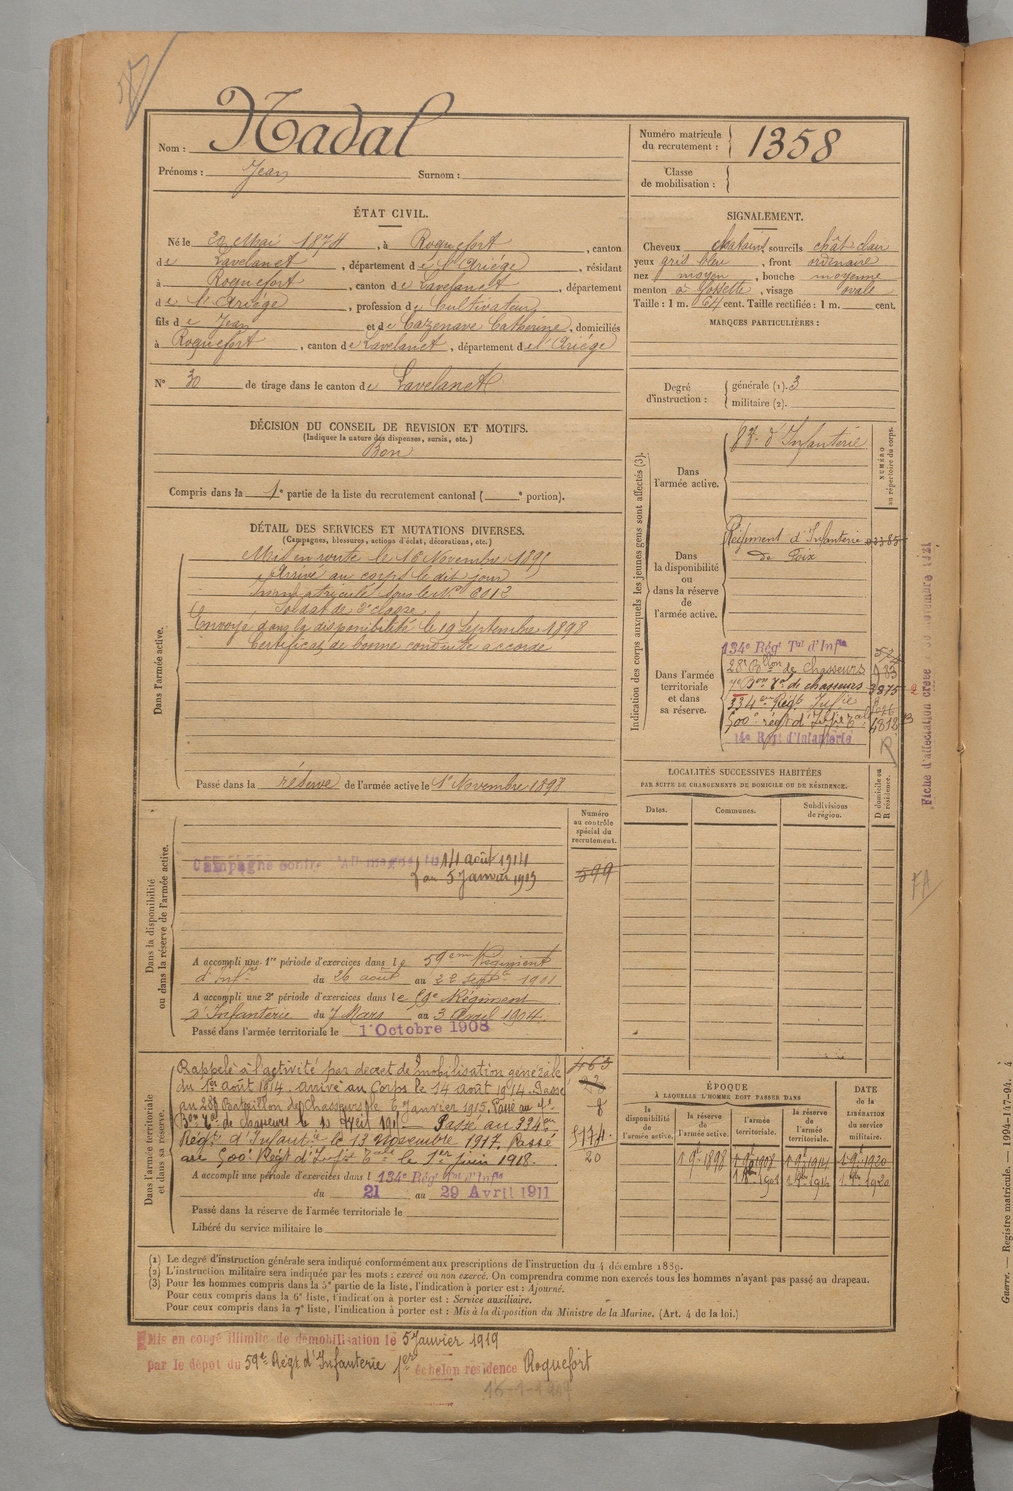 Nom : Nadal
Prénoms : Jean Surnom :
Numéro matricule du recrutement : 1358
Classe de mobilisation :
ÉTAT CIVIL.
Né le 20 Mai 1874, à Roquefort, canton
de Lavelanet, département de l'Ariége, résidant
à Roquefort, canton de Lavelanet, département
de l'Ariége, profession de Cultivateur
fils de Jean et de Cazenave Catherine, domiciliés
à Roquefort, canton de Lavelanet, département de l'Ariége
N° 30 de tirage dans le canton de Lavelanet
SIGNALEMENT.
Cheveux chatains sourcils chât-clair
yeux gris bleu, front ordinaire
nez moyen, bouche moyenne
menton à fossette, visage ovale
Taille : 1 m. 64 cent. Taille rectifiée : 1 m. cent.
MARQUES PARTICULIÈRES :
Degré d'instruction : générale (1). 3
militaire (2).
DÉCISION DU CONSEIL DE REVISION ET MOTIFS.
(Indiquer la nature des dispenses, sursis, etc.)
Bon
Compris dans la 1e partie de la liste du recrutement cantonal ( e portion).
DÉTAIL DES SERVICES ET MUTATIONS DIVERSES.
(Campagnes, blessures, actions d'éclat, décorations, etc.)
Dans l'armée active.
Mis en route le 16 Novembre 1895
Arrivé au corps le dit jour
Immatriculé sous le N° 6012
Soldat de 2e classe
Envoyé dans la disponibilité le 19 Septembre 1898
Certificat de bonne conduite accordé
Passé dans la réserve de l'armée active le 1er Novembre 1898
Indication des corps auxquels les jeunes gens sont affectés (3).
NUMÉRO au répertoire du corps.
Dans l'armée active.
d'Infanterie
Dans la disponibilité ou dans la réserve de l'armée active.
Régiment d'Infanterie
de Foix
Dans l'armée territoriale et dans sa réserve.
134e Régt Tal d'Infie
28e Bllon de Chasseurs
7e Bon Tal de chasseurs 3875
334eme Régt Infie
500e régt d'Infie Tale
14e Régt d'Infanterie
Fiche d'affectation créée novembre 1921
LOCALITÉS SUCCESSIVES HABITÉES
PAR SUITE DE CHANGEMENTS DE DOMICILE OU DE RÉSIDENCE.
Dates. Communes. Subdivisions de région. D domicile ou R résidence.
Dans la disponibilité ou dans la réserve de l'armée active.
Numéro au contrôle spécial du recrutement.
Campagne contre l'Allemagne du 14 août 1914
au 5 Janvier 1919
599
A accompli une 1re période d'exercices dans le 59eme Régiment
d'Infie du 26 août au 22 Septe 1901
A accompli une 2e période d'exercices dans le 59e Régiment
d'Infanterie du 7 Mars au 3 Avril 1904.
Passé dans l'armée territoriale le 1er Octobre 1908
Dans l'armée territoriale et dans sa réserve.
Rappelé à l'activité par décret de mobilisation générale
du 1er août 1914. arrivé au Corps le 14 août 1914. Passé
au 28e Bataillon de Chasseurs le 6 Janvier 1915. Passé au 7e
Bon Tal de chasseurs le Passé au 334eme
Régt d'Infanterie le 13 Novembre 1917. Passé
au 500e Régt d'Infie Tale le 1er Juin 1918.
463
5174
20
A accompli une période d'exercices dans l 134e Régt Tal d'Infie
du 21 au 29 Avril 1911
Passé dans la réserve de l'armée territoriale le
Libéré du service militaire le
ÉPOQUE
À LAQUELLE L'HOMME DOIT PASSER DANS
la disponibilité de l'armée active. la réserve de l'armée active. l'armée territoriale. la réserve de l'armée territoriale.
DATE de la LIBÉRATION du service militaire.
(1) Le degré d'instruction générale sera indiqué conformément aux prescriptions de l'instruction du 4 décembre 1889.
(2) L'instruction militaire sera indiquée par les mots : exercé ou non exercé. On comprendra comme non exercés tous les hommes n'ayant pas passé au drapeau.
(3) Pour les hommes compris dans la 5e partie de la liste, l'indication à porter est : Ajourné.
Pour ceux compris dans la 6e liste, l'indication à porter est : Service auxiliaire.
Pour ceux compris dans la 7e liste, l'indication à porter est : Mis à la disposition du Ministre de la Marine. (Art. 4 de la loi.)
Mis en congé illimité de démobilisation le 5 Janvier 1919
par le dépot du 59e Régt d'Infanterie 1er échelon résidence Roquefort
Guerre. — Registre matricule. — 1994-147-94.